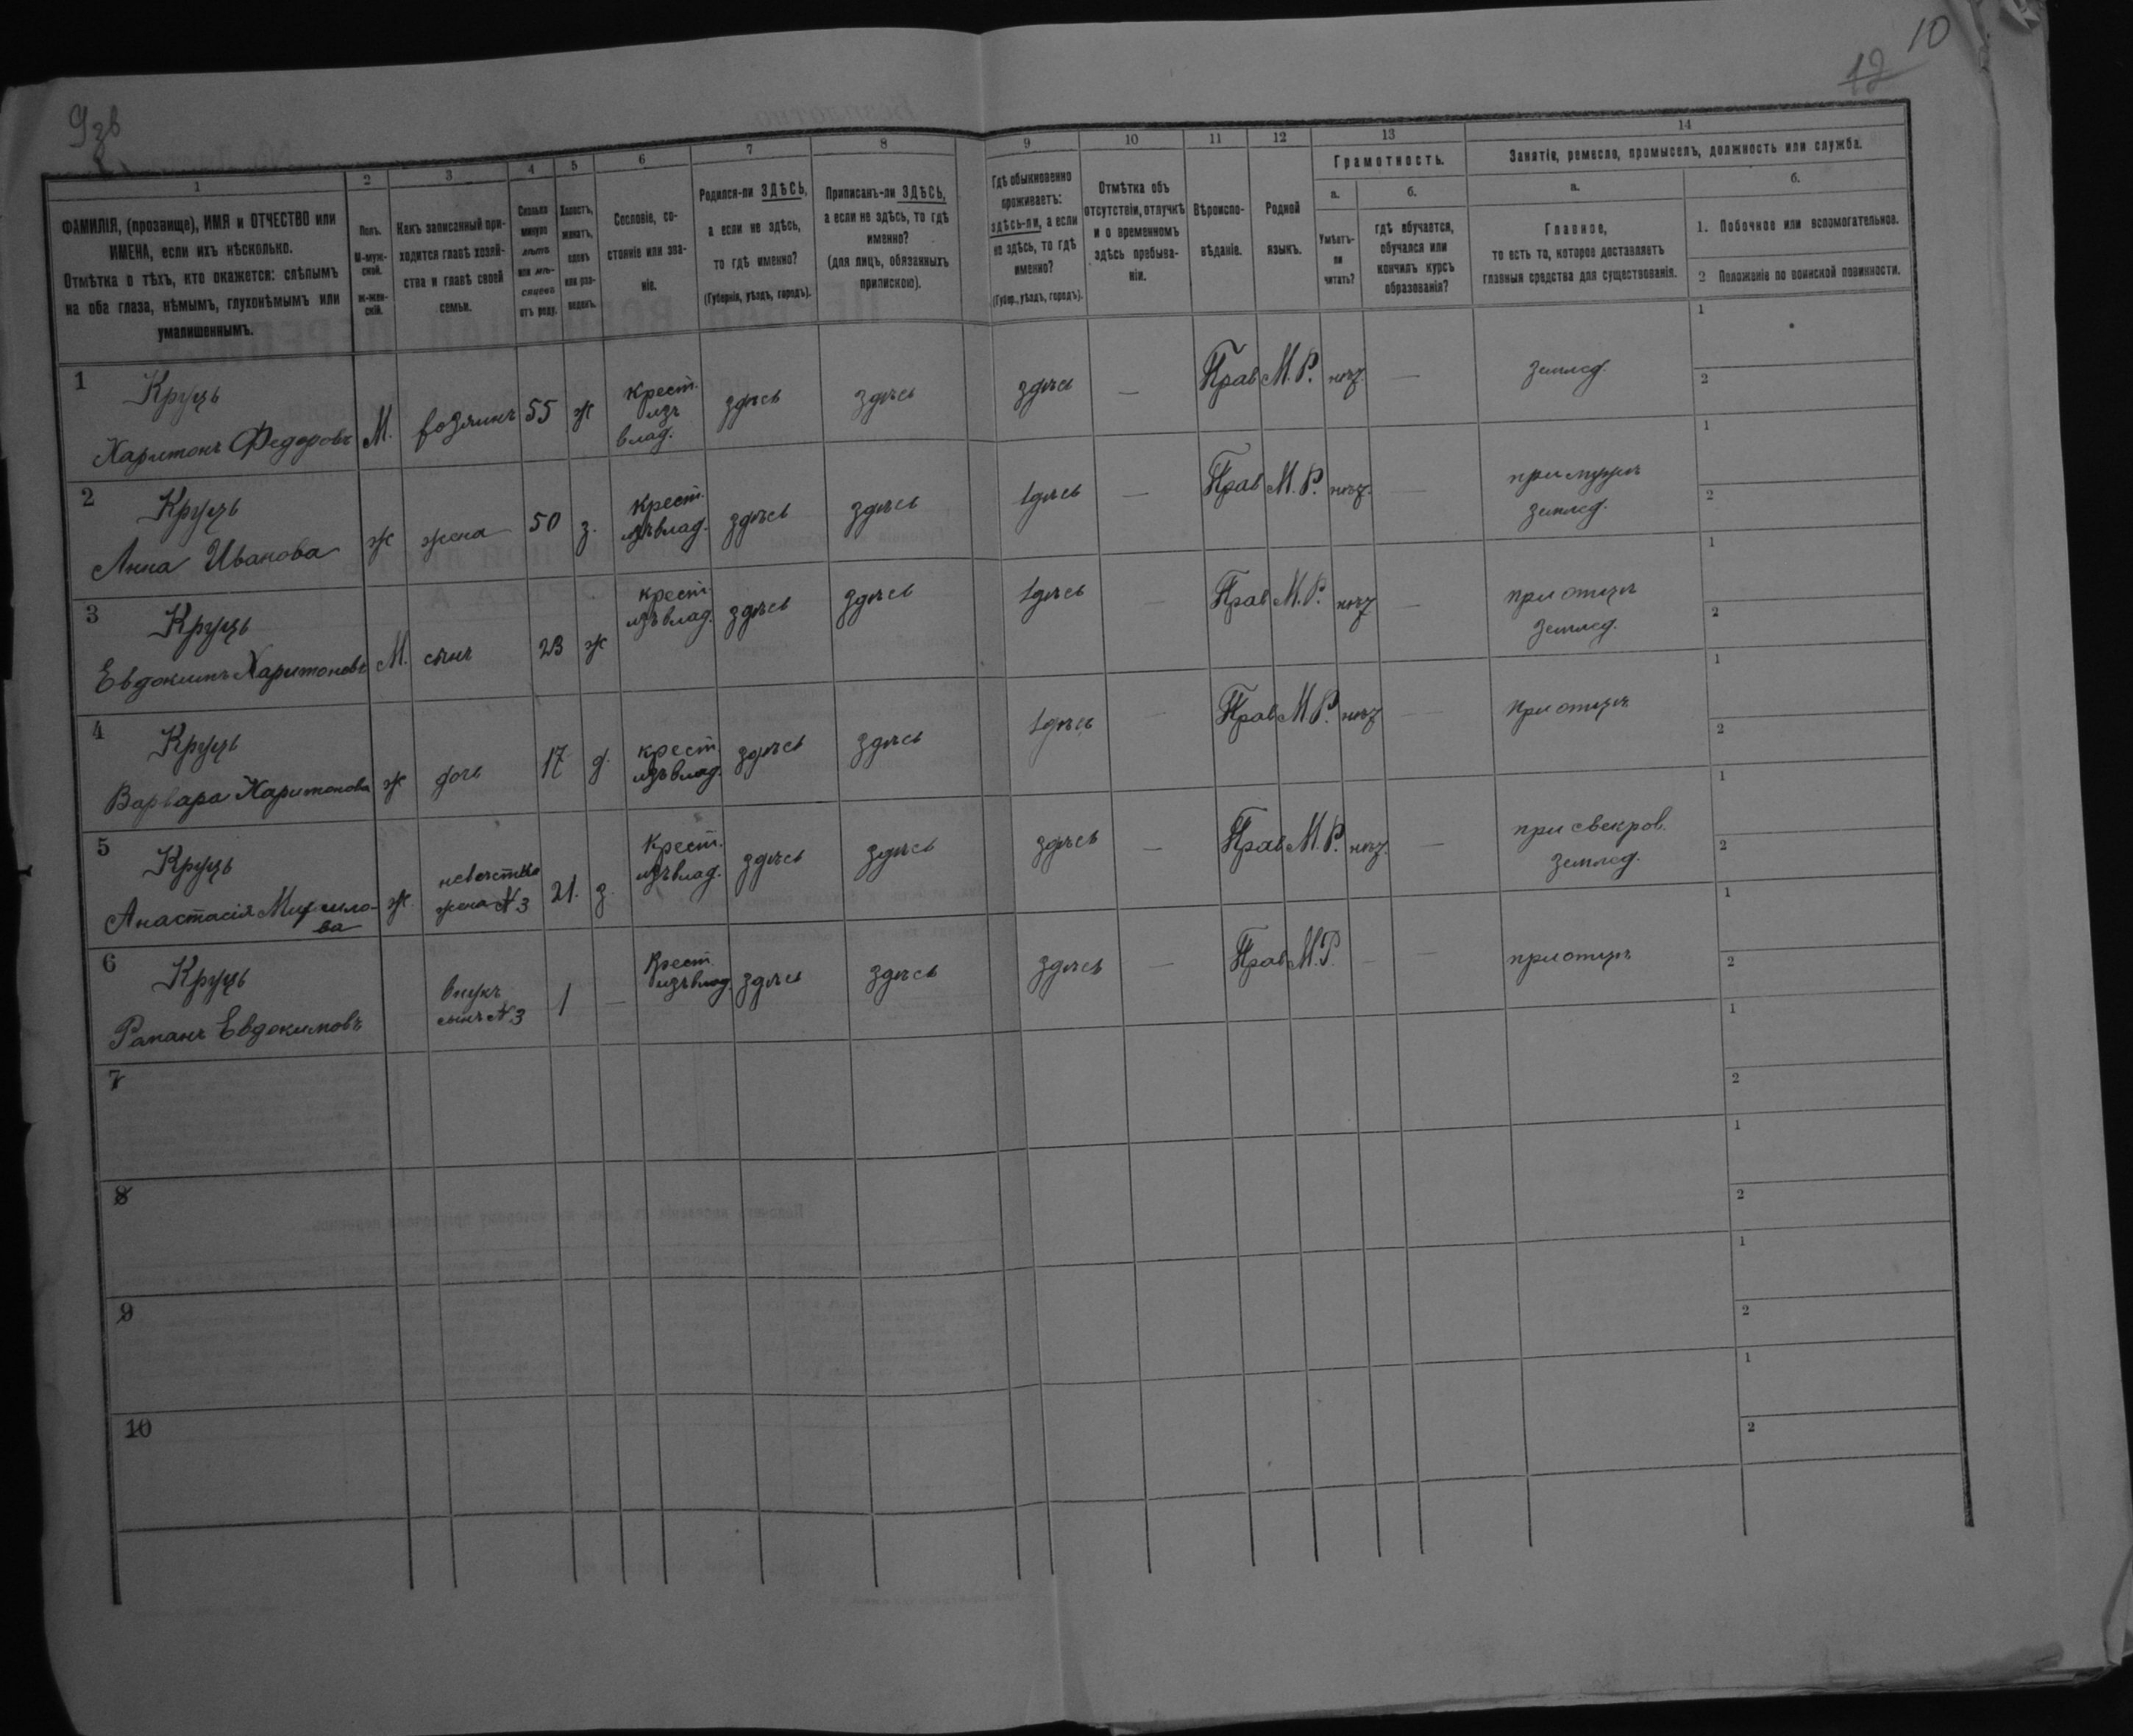 9зв
10
12
1
2
3
4
5
6
7
8
9
10
11
12
13
14
ФАМИЛІЯ, (прозвище), ИМЯ и ОТЧЕСТВО или
ИМЕНА, если ихъ нѣсколько.
Отмѣтка о тѣхъ, кто окажется: слѣпымъ
на оба глаза, нѣмымъ, глухонѣмымъ или
умалишеннымъ.
Полъ.
М-муж-
ской.
ж-жен-
скій.
Какъ записанный при-
ходится главѣ хозяй-
ства и главѣ своей
семьи.
Сколько
минуло
лѣтъ
или мѣ-
сяцевъ
отъ роду.
Холостъ,
женатъ,
вдовъ
или раз-
веденъ.
Сословіе, со-
стояніе или зва-
ніе.
Родился-ли ЗДѢСЬ,
а если не здѣсь,
то гдѣ именно?
(Губернія, уѣздъ, городъ).
Приписанъ-ли ЗДѢСЬ,
а если не здѣсь, то гдѣ
именно?
(для лицъ, обязанныхъ
припискою).
Гдѣ обыкновенно
проживаетъ:
здѣсь-ли, а если
не здѣсь, то гдѣ
именно?
(Губер., уѣздъ, городъ).
Отмѣтка объ
отсутствіи, отлучкѣ
и о временномъ
здѣсь пребыва-
ніи.
Вѣроиспо-
вѣданіе.
Родной
языкъ.
Грамотность.
а.
б.
Умѣетъ-
ли
читать?
гдѣ обучается,
обучался или
кончилъ курсъ
образованія?
Занятіе, ремесло, промыселъ, должность или служба.
а.
б.
Главное,
то есть то, которое доставляетъ
главныя средства для существованія.
1. Побочное или вспомогательное.
2 Положеніе по воинской повинности.
1 Круць
Харитонъ Федоровъ М. хозяинъ 55 ж крест. изъ влад. здѣсь здѣсь здѣсь — Прав М. Р. нѣт. — землед.
1
2
2 Круць
Анна Иванова ж жена 50 з. крест. изъ влад. здѣсь здѣсь здѣсь — Прав М. Р. нѣт. — при мужѣ землед.
1
2
3 Круць
Евдокимъ Харитоновъ М. сынъ 23 ж крест. изъ влад. здѣсь здѣсь здѣсь — Прав М. Р. нѣт — при отцѣ землед.
1
2
4 Круць
Варвара Харитонова ж дочь 17 д. крест. изъ влад. здѣсь здѣсь здѣсь — Прав М. Р. нѣт — при отцѣ
1
2
5 Круць
Анастасія ж. невестка жена N 3 21. з. крест. изъ влад. здѣсь здѣсь здѣсь — Прав М. Р. нѣт. — при свекров. землед.
1
2
6 Круць
Евдокимовъ внукъ сынъ N 3 1 — Крест. изъ влад. здѣсь здѣсь здѣсь — Прав М. Р. — — при отцѣ
1
2
7
1
2
8
1
2
9
1
2
10
1
2